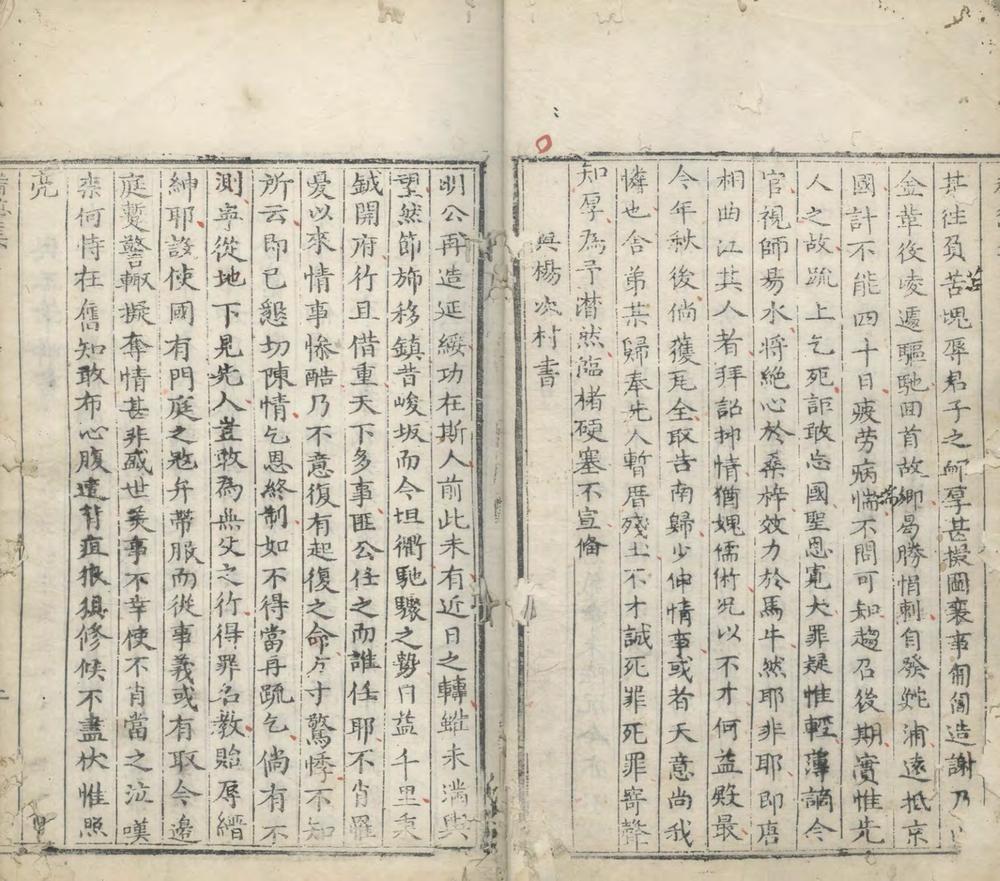 某往負苫塊辱君子之卹厚甚擬圖襄事匍匐造謝乃
金革役崚遞驅馳回首故鄉曷勝悁刺自發
浦遠抵京
國計不能四十日疲勞病惴不問可知趨召後期實惟先
人之故疏上乞死詎敢忘國聖恩寬大罪疑惟輕薄謫令
官視師易水將絕心於桑梓效力於馬牛然耶非耶即唐
相曲江其人者拜詔抑情猶媿儒術况以不才何益敗最
今年秋後倘獲瓦全取告南歸少伸情事或者天意尚我
憐也舍弟某歸奉先人暫厝殘土不才誠死罪死罪寄聲
知厚為予潸然臨楮硬塞不宣俻
與楊次村書
明公再造延綏功在斯人前此未有近日之轉
未满輿
望然節旆移鎮昔峻坂而今坦衢馳驟之勢日益千里秉
鉞開府行且借重天下多事匪公任之而誰任耶不肖罹
憂以來情事慘酷乃不意復有起復之命方寸驚悸不知
所云即已懇切陳情乞恩終制如不得當再疏乞倘有不
測寧從地下見先人豈敢為無父之行得罪名教貽辱縉
紳耶設使國有門庭之
弁帶服而從事義或有取今邊
庭蹔警輙擬奪情甚非盛世美事不幸使不肖當之泣嘆
柰何恃在舊知敢布心腹遣
狼
修候不盡伏惟照
亮